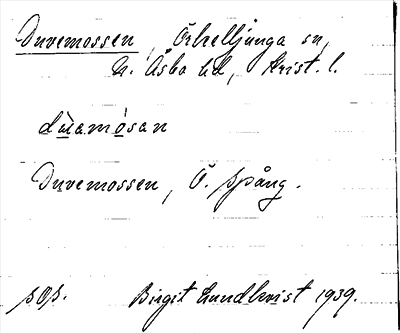 Duvemossen, Örkelljunga sn,
N. Åsbo hd, Krist. l.
dúamósan
Duvemossen, Ö. Spång.
sOs.
Birgit Lundkvist 1939.